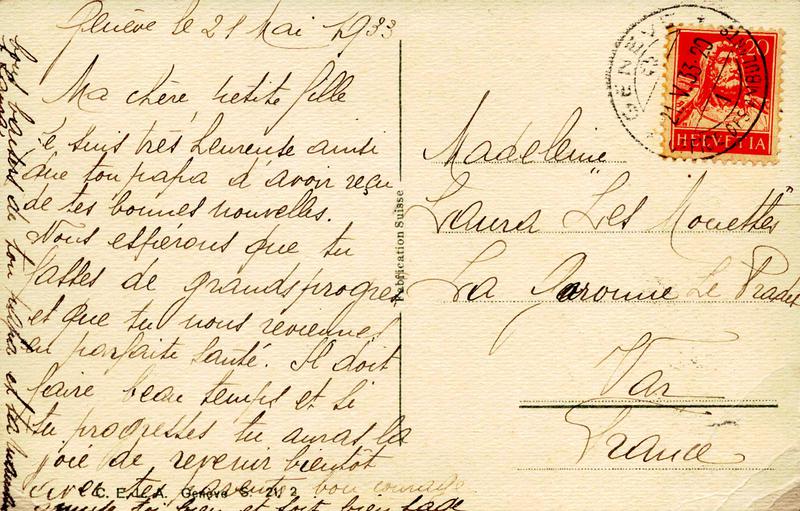 Genève le 21 Mai 1933
Ma chère petite fille
Je suis très heureuse ainsi
que ton papa d avoir reçu
de tes bonnes nouvelles.
Nous espérons que tu
fasses de grands progrès
et que tu nous reviennes
en parfaite santé. Il doit
faire beau temps et si
tu progresses tu auras la
joie de revenir bientôt
avec tes parents bon courage
amuse toi bien et soit bien sage
bons baisers de ton papa et ta maman
Publication Suisse
C. E. A. Genève S. 2
Madeleine
Laura "Les Mouettes"
La Garonne Le Pradet
Var
France
GENÈVE
21.V.33-20
20
HELVETIA